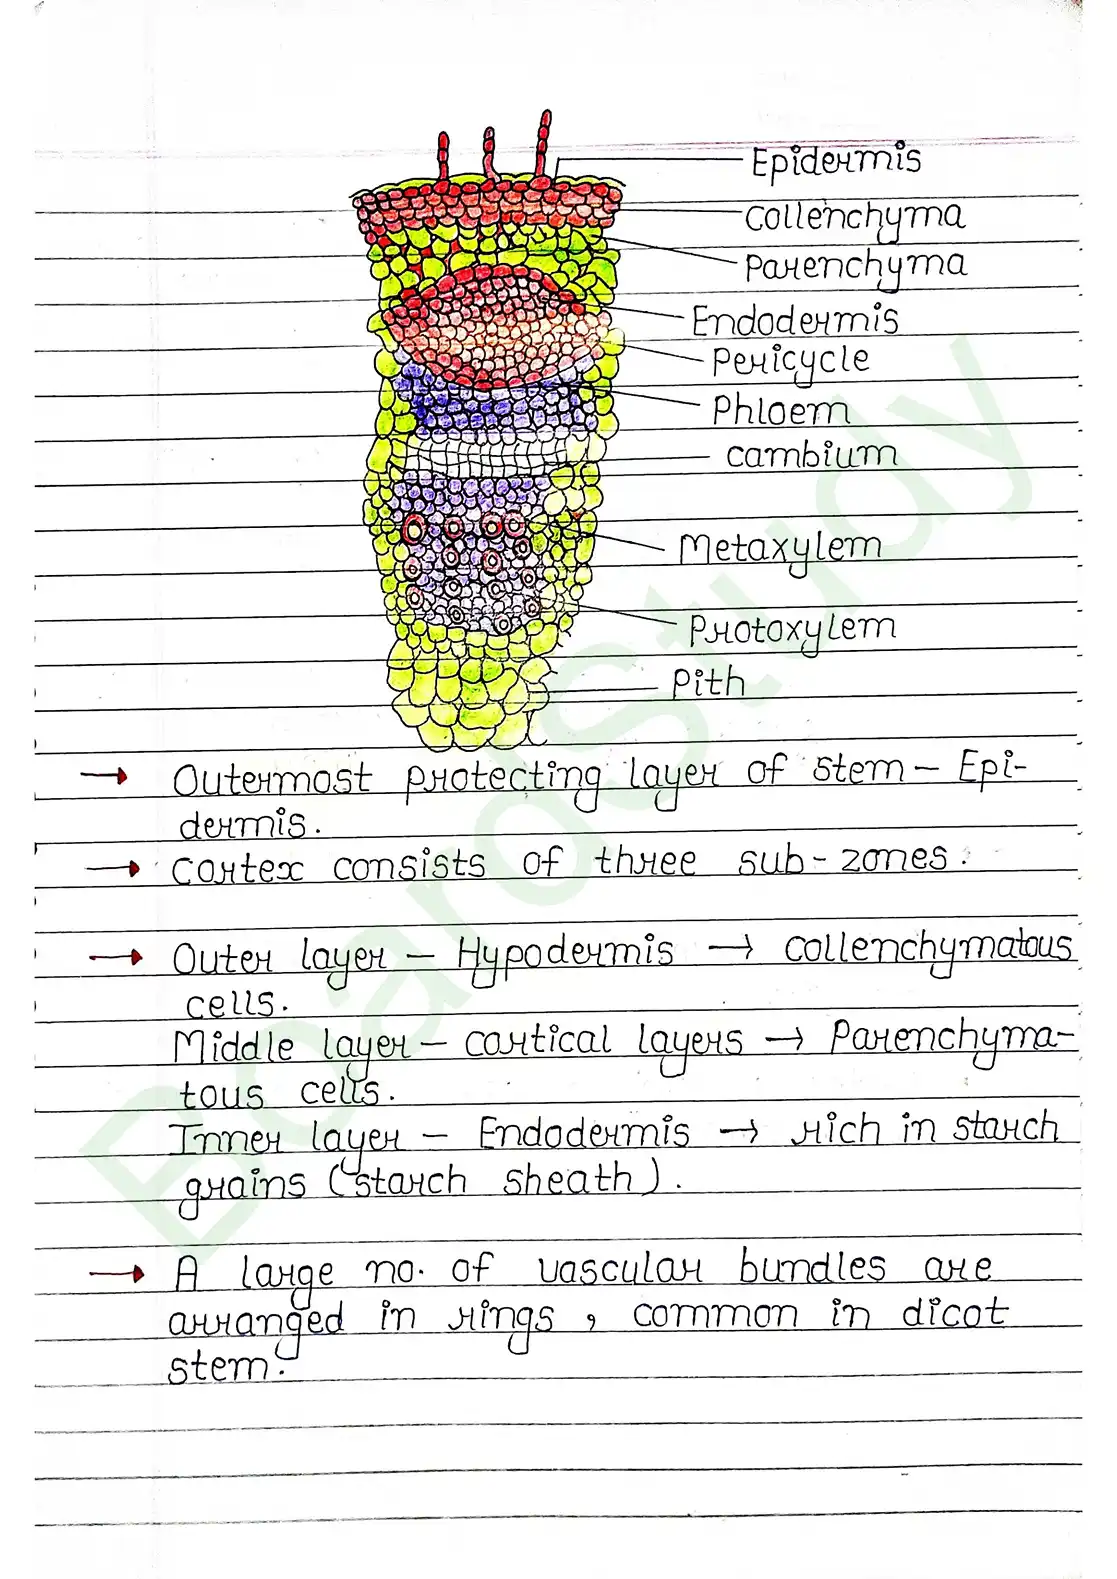 Epidermis
collenchyma
Parenchyma
Endodermis
Pericycle
Phloem
cambium
Metaxylem
Protoxylem
Pith
→ Outermost protecting layer of stem – Epi-
dermis.
→ Cortex consists of three sub-zones.
→ Outer layer – Hypodermis → collenchymatous
cells.
Middle layer – cortical layers → Parenchyma-
tous cells.
Inner layer – Endodermis → rich in starch
grains (starch sheath).
→ A large no. of vascular bundles are
arranged in rings, common in dicot
stem.
BoardStudy